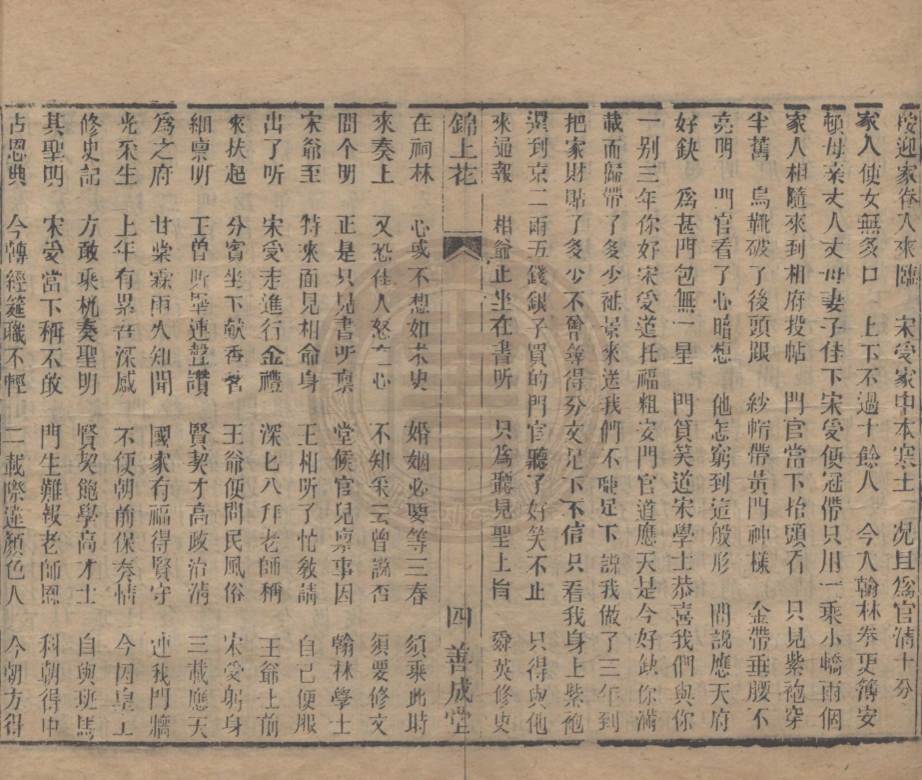 接迎家眷人來臨　宋受家中本寒士　況且為官清十分
家人使女無多口　上下不過十餘人　今入翰林奉更薄安
頓母亲丈人丈母妻子住下宋受便冠帶只用一乘小轎兩個
家人相隨來到相府投帖　門官當下抬頭看　只見紫袍穿
半舊　烏靴破了後頭跟　紗帽帶黃門神樣　金帶垂腰不
亮明　門官看了心暗想　他怎窮到這般形　聞說應天府
好缺　為甚門包無一星　門官笑道宋學士恭喜我們與你
一别三年你好宋受道托福粗安門官道應天是今好缺你滿
載而歸帶了多少祉景來送我們不唗足下說我做了三年到
把家財貼了多少不曾尋得分文足下不信只看我身上紫袍
還到京二兩五錢銀子買的門官聽了好笑不止　只得與他
來通報　相爺正坐在書听　只為聽見聖上旨　舜英修史
錦上花　四　善成堂
在祠林　心或不想如末史　婚姻必要等三春　須乘此時
來奏上　又恐佳人怒在心　不知采云曾說否　須要修文
問个明　正是只見書听禀　堂候官兒禀事因　翰林學士
宋爺至　特來面見相爺身　王相听了忙敎請　自己便服
出了听　宋受走進行金禮　深匕八拜老師稱　王爺上前
來扶起　分賓坐下献香茗　王爺便問民風俗　宋受躬身
細禀明　王曾听畢連聲讚　賢契才高政治清　三載應天
為之府　甘棠霖雨久知聞　國家有福得賢守　連我門牆
光采生　上年有累吾深感　不便朝前保奏情　今因皇上
修史記　方敢乘机奏聖明　賢契飽學高才士　自與班馬
其聖明　宋受當下稱不敢　門生難報老師恩　科朝得中
占恩典　今轉經筵職不輕　二載際違顏色人　今朝方得